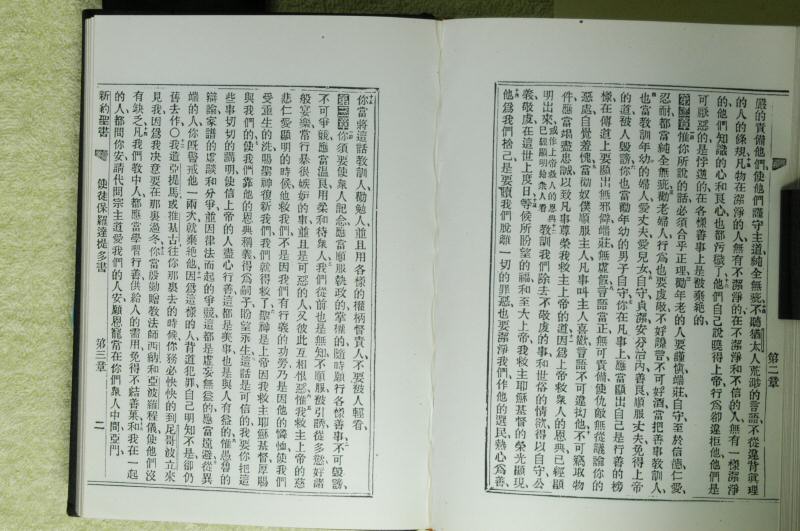 第二章
嚴的責備他們、使他們謹守主道純全無疵、不聽猶太人荒渺的言語、不從違背眞理
的人的條規、凡物在潔淨的人、無有不潔淨的、在不潔淨和不信的人、無有一樣潔淨
的、他們知識的心和良心也都污穢了、他們自己說曉得上帝、行爲卻違拒他、他們是
可厭惡的、是悖逆的、在各樣善事上是被棄絕的、
第二章 惟你所說的話必須合乎正理、勸年老的人要謹愼端莊自守、至於信德仁愛
忍耐都當純全無疵、勸老婦人行爲也要虔敬、不好讒言、不可好酒、當把善事敎訓人、
也當敎訓年幼的婦人、愛丈夫、愛兒女、自守貞潔、安分治內、善良順服丈夫、免得上帝
的道被人毀謗、你也當勸年幼的男子自守、你在凡事上應當顯出自己是行善的榜
樣、在傳道上要顯出無邪僻端莊無虛假、言語當正無可責備、使仇敵無從議論你的
惡處、自覺羞愧、當勸奴僕順服主人、凡事叫主人喜歡、言語不可違拗他、不可竊取物
件、應當竭盡忠誠、以致凡事尊榮我救主上帝的道、因爲上帝救衆人的恩典已經顯
明出來、或作上帝救人的恩典已經顯明給衆人看 敎訓我們除去不敬虔的事、和世俗的情欲、得以自守公
義敬虔、在這世上度日、等候所盼望的福、和至大上帝我救主耶穌基督的榮光顯現、
他爲我們捨己、是要贖我們脫離一切的罪惡、也要潔淨我們、作他的選民、熱心爲善、
你當將這話敎訓人、勸勉人、並且用各樣的權柄督責人、不要被人輕看、
第三章 你須要使衆人記念、應當順服執政的掌權的、隨時願行各樣善事、不可毀謗、
不可爭競、應當溫良、用柔和待衆人、我們從前也是無知、不順服、被引誘、從多慾好諸
般宴樂、常行暴很嫉妒的事、並且是可惡的人、又彼此互相恨惡、惟我救主上帝的慈
悲仁愛顯明的時候、他救我們、不是因我們有行義的功勞、乃是因他的憐恤、使我們
受重生的洗、賜聖神復新我們、我們就得救了、聖神是上帝因我救主耶穌基督厚賜
與我們的、使我們靠他的恩典稱義、得爲嗣子、盼望永生、這話是可信的、我要你把這
些事切切的講明、使信上帝的人盡心行善、這都是美事、也是與人有益的、惟愚拙的
辯論、家譜的虛談、和分爭、並因律法而起的爭競、這都是虛妄無益的、應當遠避、從異
端的人、你旣警戒他一兩次、就棄絕他、因爲這樣的人背道犯罪、自己明知不是、卻仍
舊去作、〇我遣亞提馬或推基古往你那裏去的時候、你務必快快的到尼哥波立來
見我、因爲我決意要在那裏過冬、你當殷勤贈敎法師西納和亞波羅程儀、使他們沒
有缺乏、凡我們敎中人都應當學習行善、供給人的需用、免得不結善果、和我在一起
的人都問你安、請代問宗主道愛我們的人安、願恩寵常在你們衆人中間、亞門、
新約聖書 使徒保羅達提多書 第三章 二